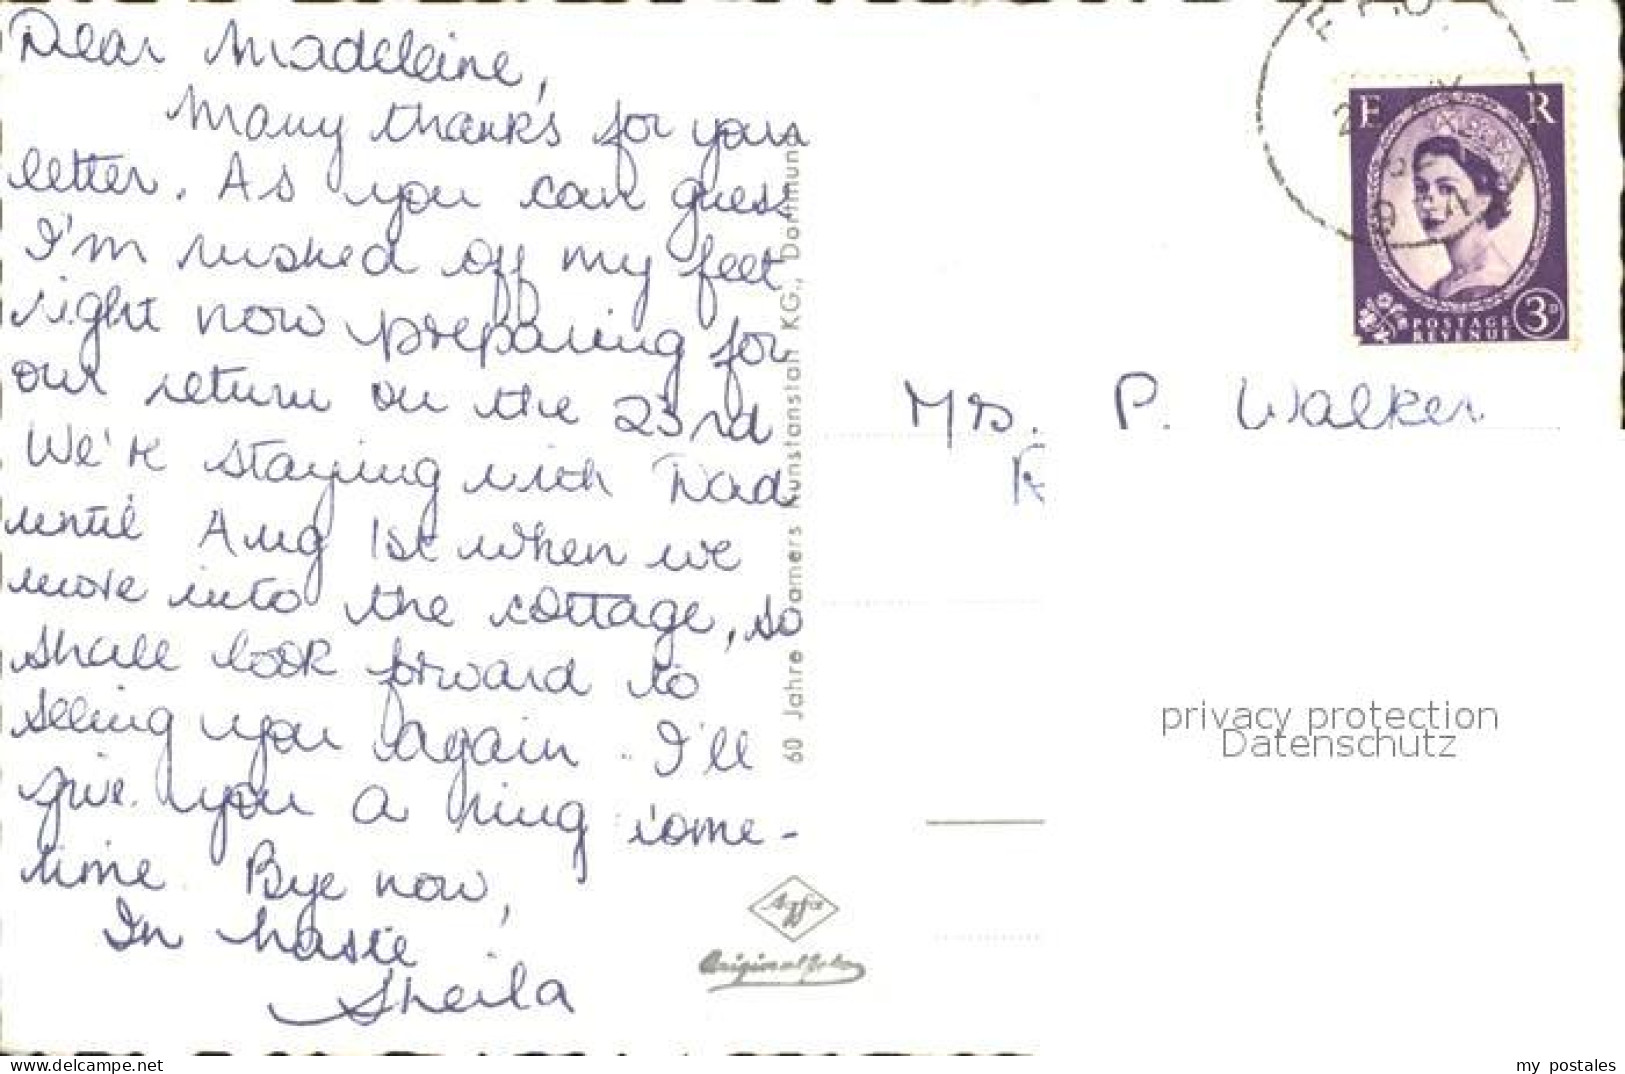 Dear Madeleine,
Many thanks for your
letter. As you can guess
I'm rushed off my feet
right now preparing for
our return on the 23rd
We're staying with Dad
until Aug 1st when we
move into the cottage, so
shall look forward to
seeing you again. I'll
give you a ring some-
time. Bye now,
In haste
Sheila
60 Jahre Cramers Kunstanstalt KG., Dortmund
Agfa
Originalfoto
E R
POSTAGE
REVENUE
3D
Mrs. P. Walker
privacy protection
Datenschutz
https://www.delcampe.net
my postales